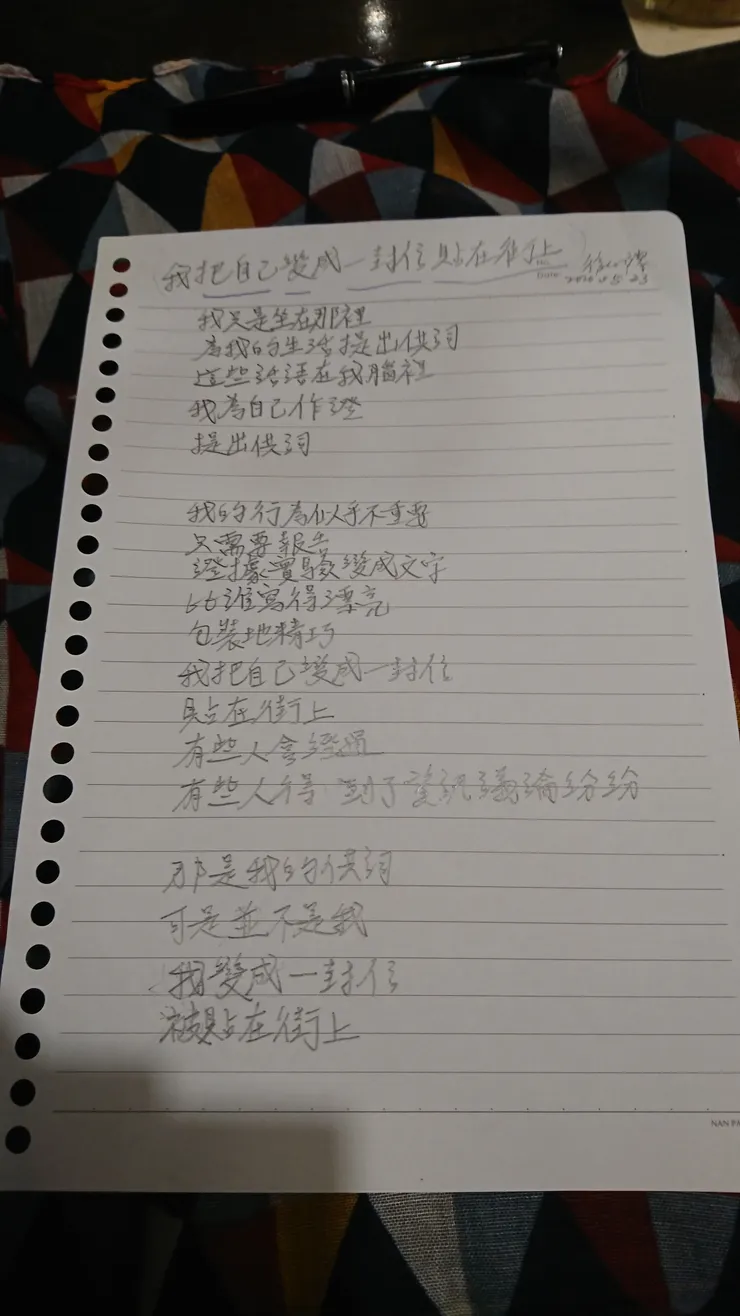 我把自己變成一封信貼在街上
我只是坐在那裡
為我的生活提出供詞
這些話語在我腦裡
我為自己作證
提出供詞
我的行為似乎不重要
只需要報告
證據實驗變成文字
比誰寫得漂亮
包裝地精巧
我把自己變成一封信
貼在街上
有些人會經過
有些人得到了資訊議論紛紛
那是我的供詞
可是並不是我
我變成一封信
被貼在街上
NAN PA